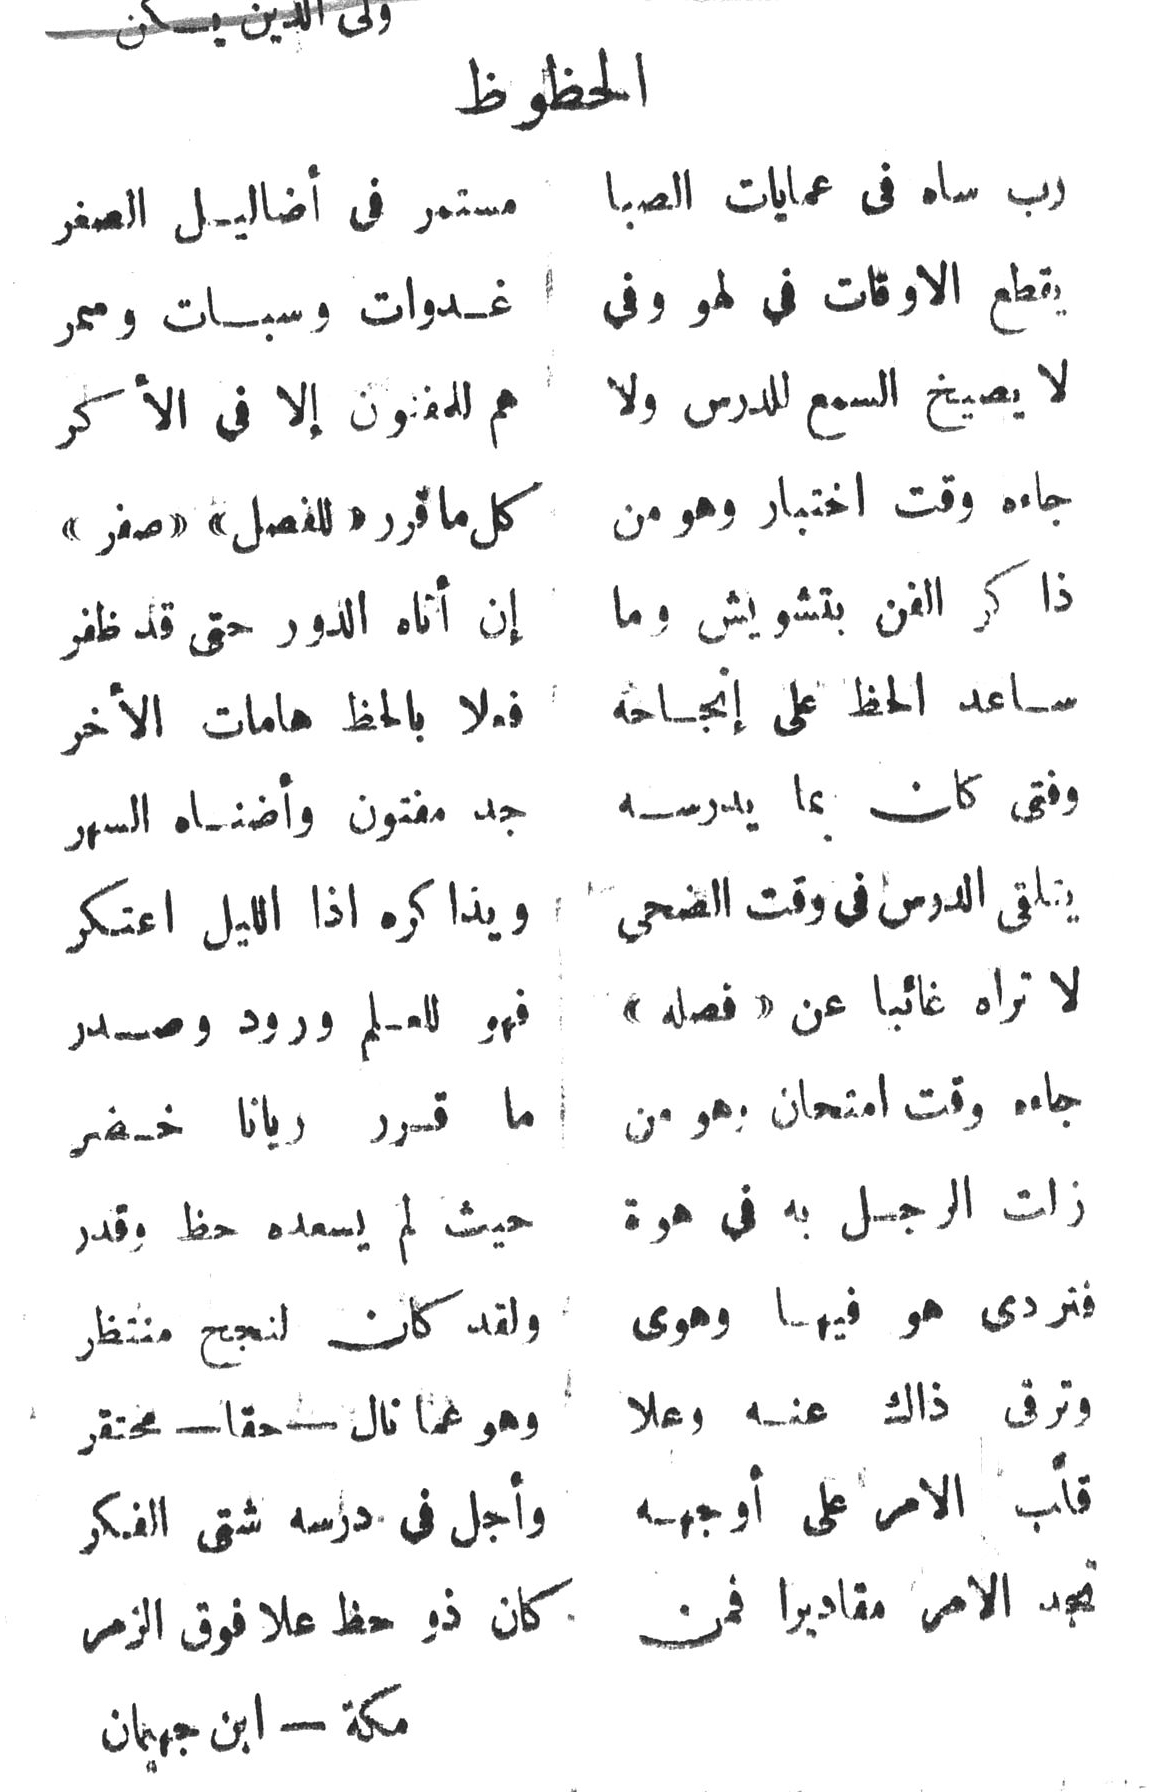 ولى الدين يكن
الحظوظ
رب ساه فى عمايات الصبا مستمر فى أضاليل الصغر
يقطع الاوقات في لهو وفي غدوات وسبات وسمر
لا يصيخ السمع للدرس ولا هم للمفتون إلا في الأكر
جاءه وقت اختبار وهو من كل ما قرر «للفصل» «صفر»
ذاكر الفن بتشويش وما إن أتاه الدور حتى قد ظفر
ساعد الحظ على إنجاحه فعلا بالحظ هامات الأخر
وفتى كان بما يدرسه جد مفتون وأضناه السهر
يتلقى الدرس فى وقت الضحى ويذاكره اذا الليل اعتكر
لا تراه غائبا عن «فصله» فهو للعلم ورود وصدر
جاءه وقت امتحان وهو من ما قرر ريانا خضر
زلت الرجل به في هوة حيث لم يسعده حظ وقدر
فتردى هو فيها وهوى ولقد كان لنجح منتظر
وترقى ذاك عنه وعلا وهو عما نال — حقا — محتقر
قلّب الامر على أوجهه وأجل فى درسه شتى الفكر
تجد الامر مقاديرا فمن كان ذو حظ علا فوق الزمر
مكة — ابن جهيمان